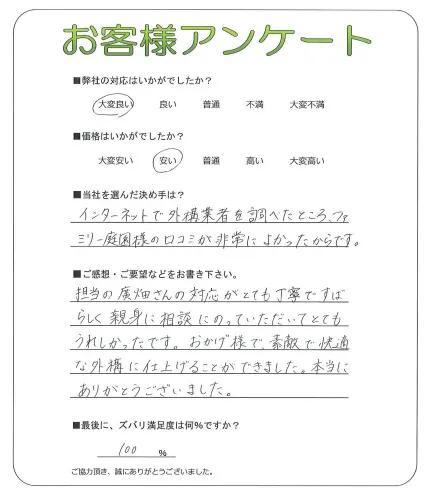 お客様アンケート
■弊社の対応はいかがでしたか？
大変良い 良い 普通 不満 大変不満
■価格はいかがでしたか？
大変安い 安い 普通 高い 大変高い
■当社を選んだ決め手は？
インターネットで外構業者を調べたところ、ファ
ミリー庭園様の口コミが非常によかったからです。
■ご感想・ご要望などをお書き下さい。
担当の廣畑さんの対応がとても丁寧ですば
らしく親身に相談にのっていただいてとても
うれしかったです。おかげ様で、素敵で快適
な外構に仕上げることができました。本当に
ありがとうございました。
■最後に、ズバリ満足度は何%ですか？
100 %
ご協力頂き、誠にありがとうございました。